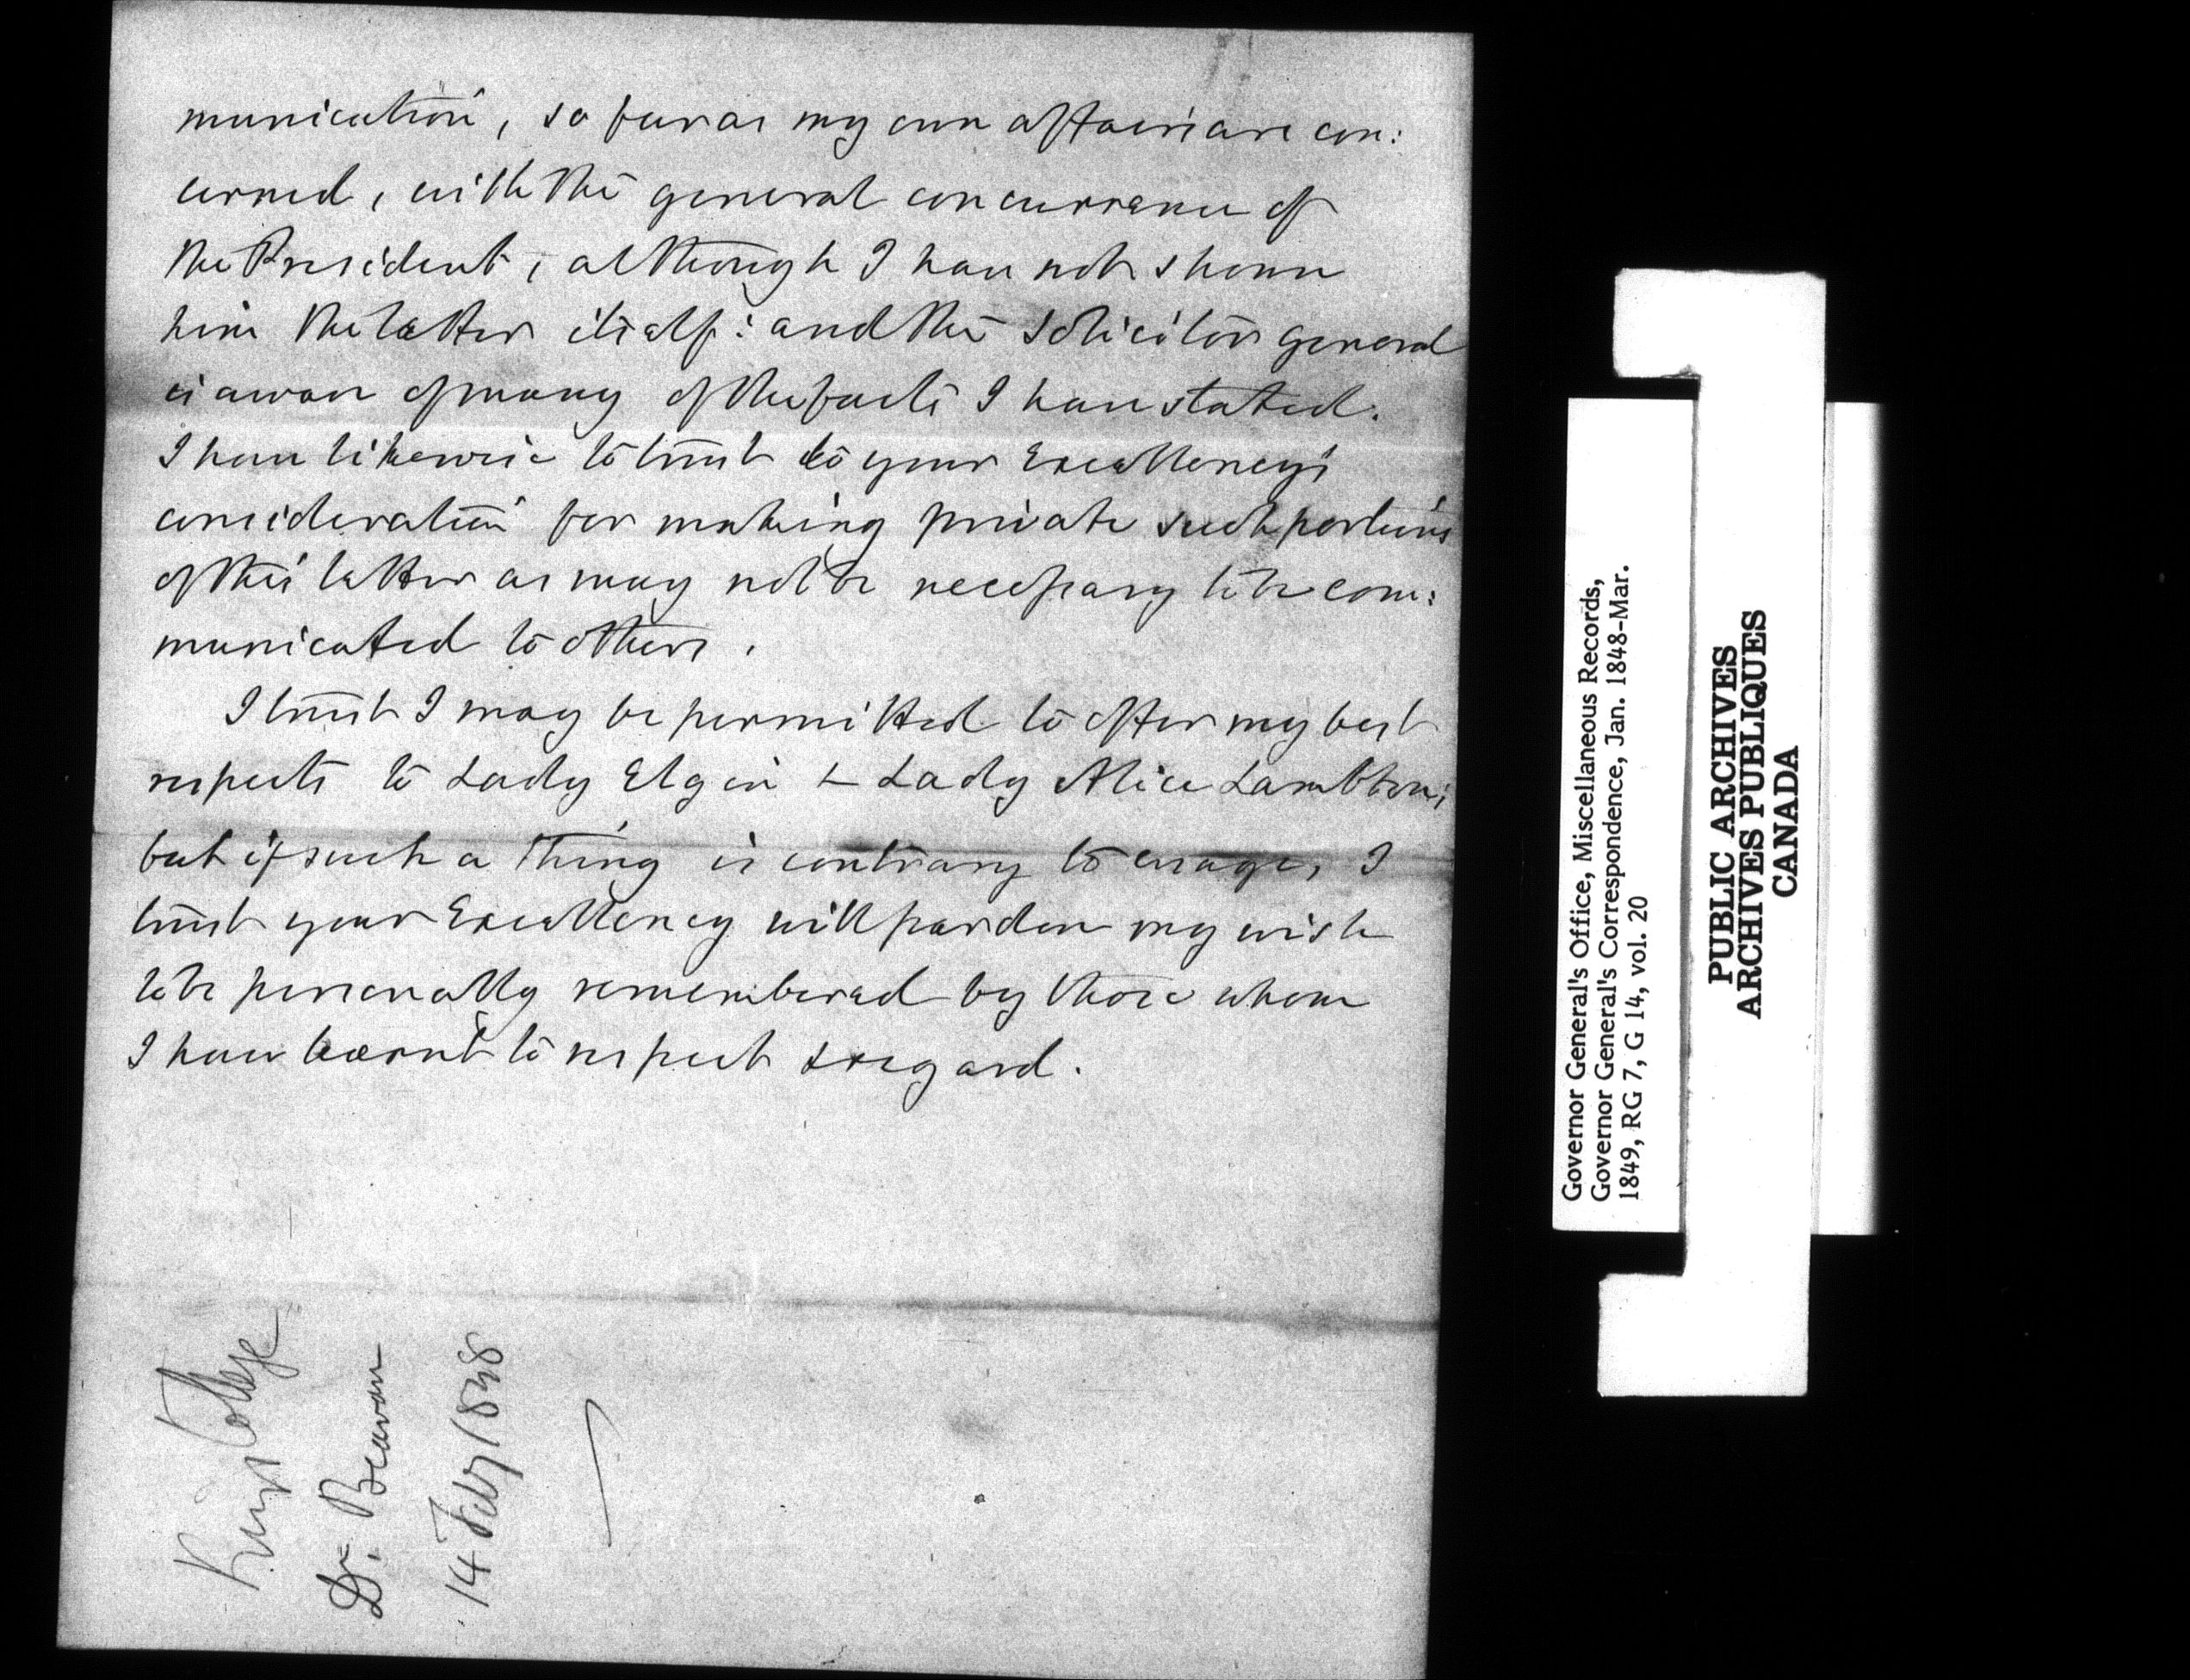 munication, so far as my own affairs are con:
cerned, with the general concurrence of
the President, although I have not shown
him the letter itself: and the Solicitor general
is aware of many of the facts I have stated.
I have likewise to trust to your Excellency's
consideration for making private such portions
of this letter as may not be necessary to be com:
municated to others.
I trust I may be permitted to offer my best
respects to Lady Elgin & Lady Alice Lambton;
but if such a thing is contrary to usage, I
trust your Excellency will pardon my wish
to be personally remembered by those whom
I have learnt to respect & regard.
Kings College
Dr. Beavan
14 Feby 1848
Governor General's Office, Miscellaneous Records,
Governor General's Correspondence, Jan. 1848-Mar.
1849, RG 7, G 14, vol. 20
PUBLIC ARCHIVES
ARCHIVES PUBLIQUES
CANADA